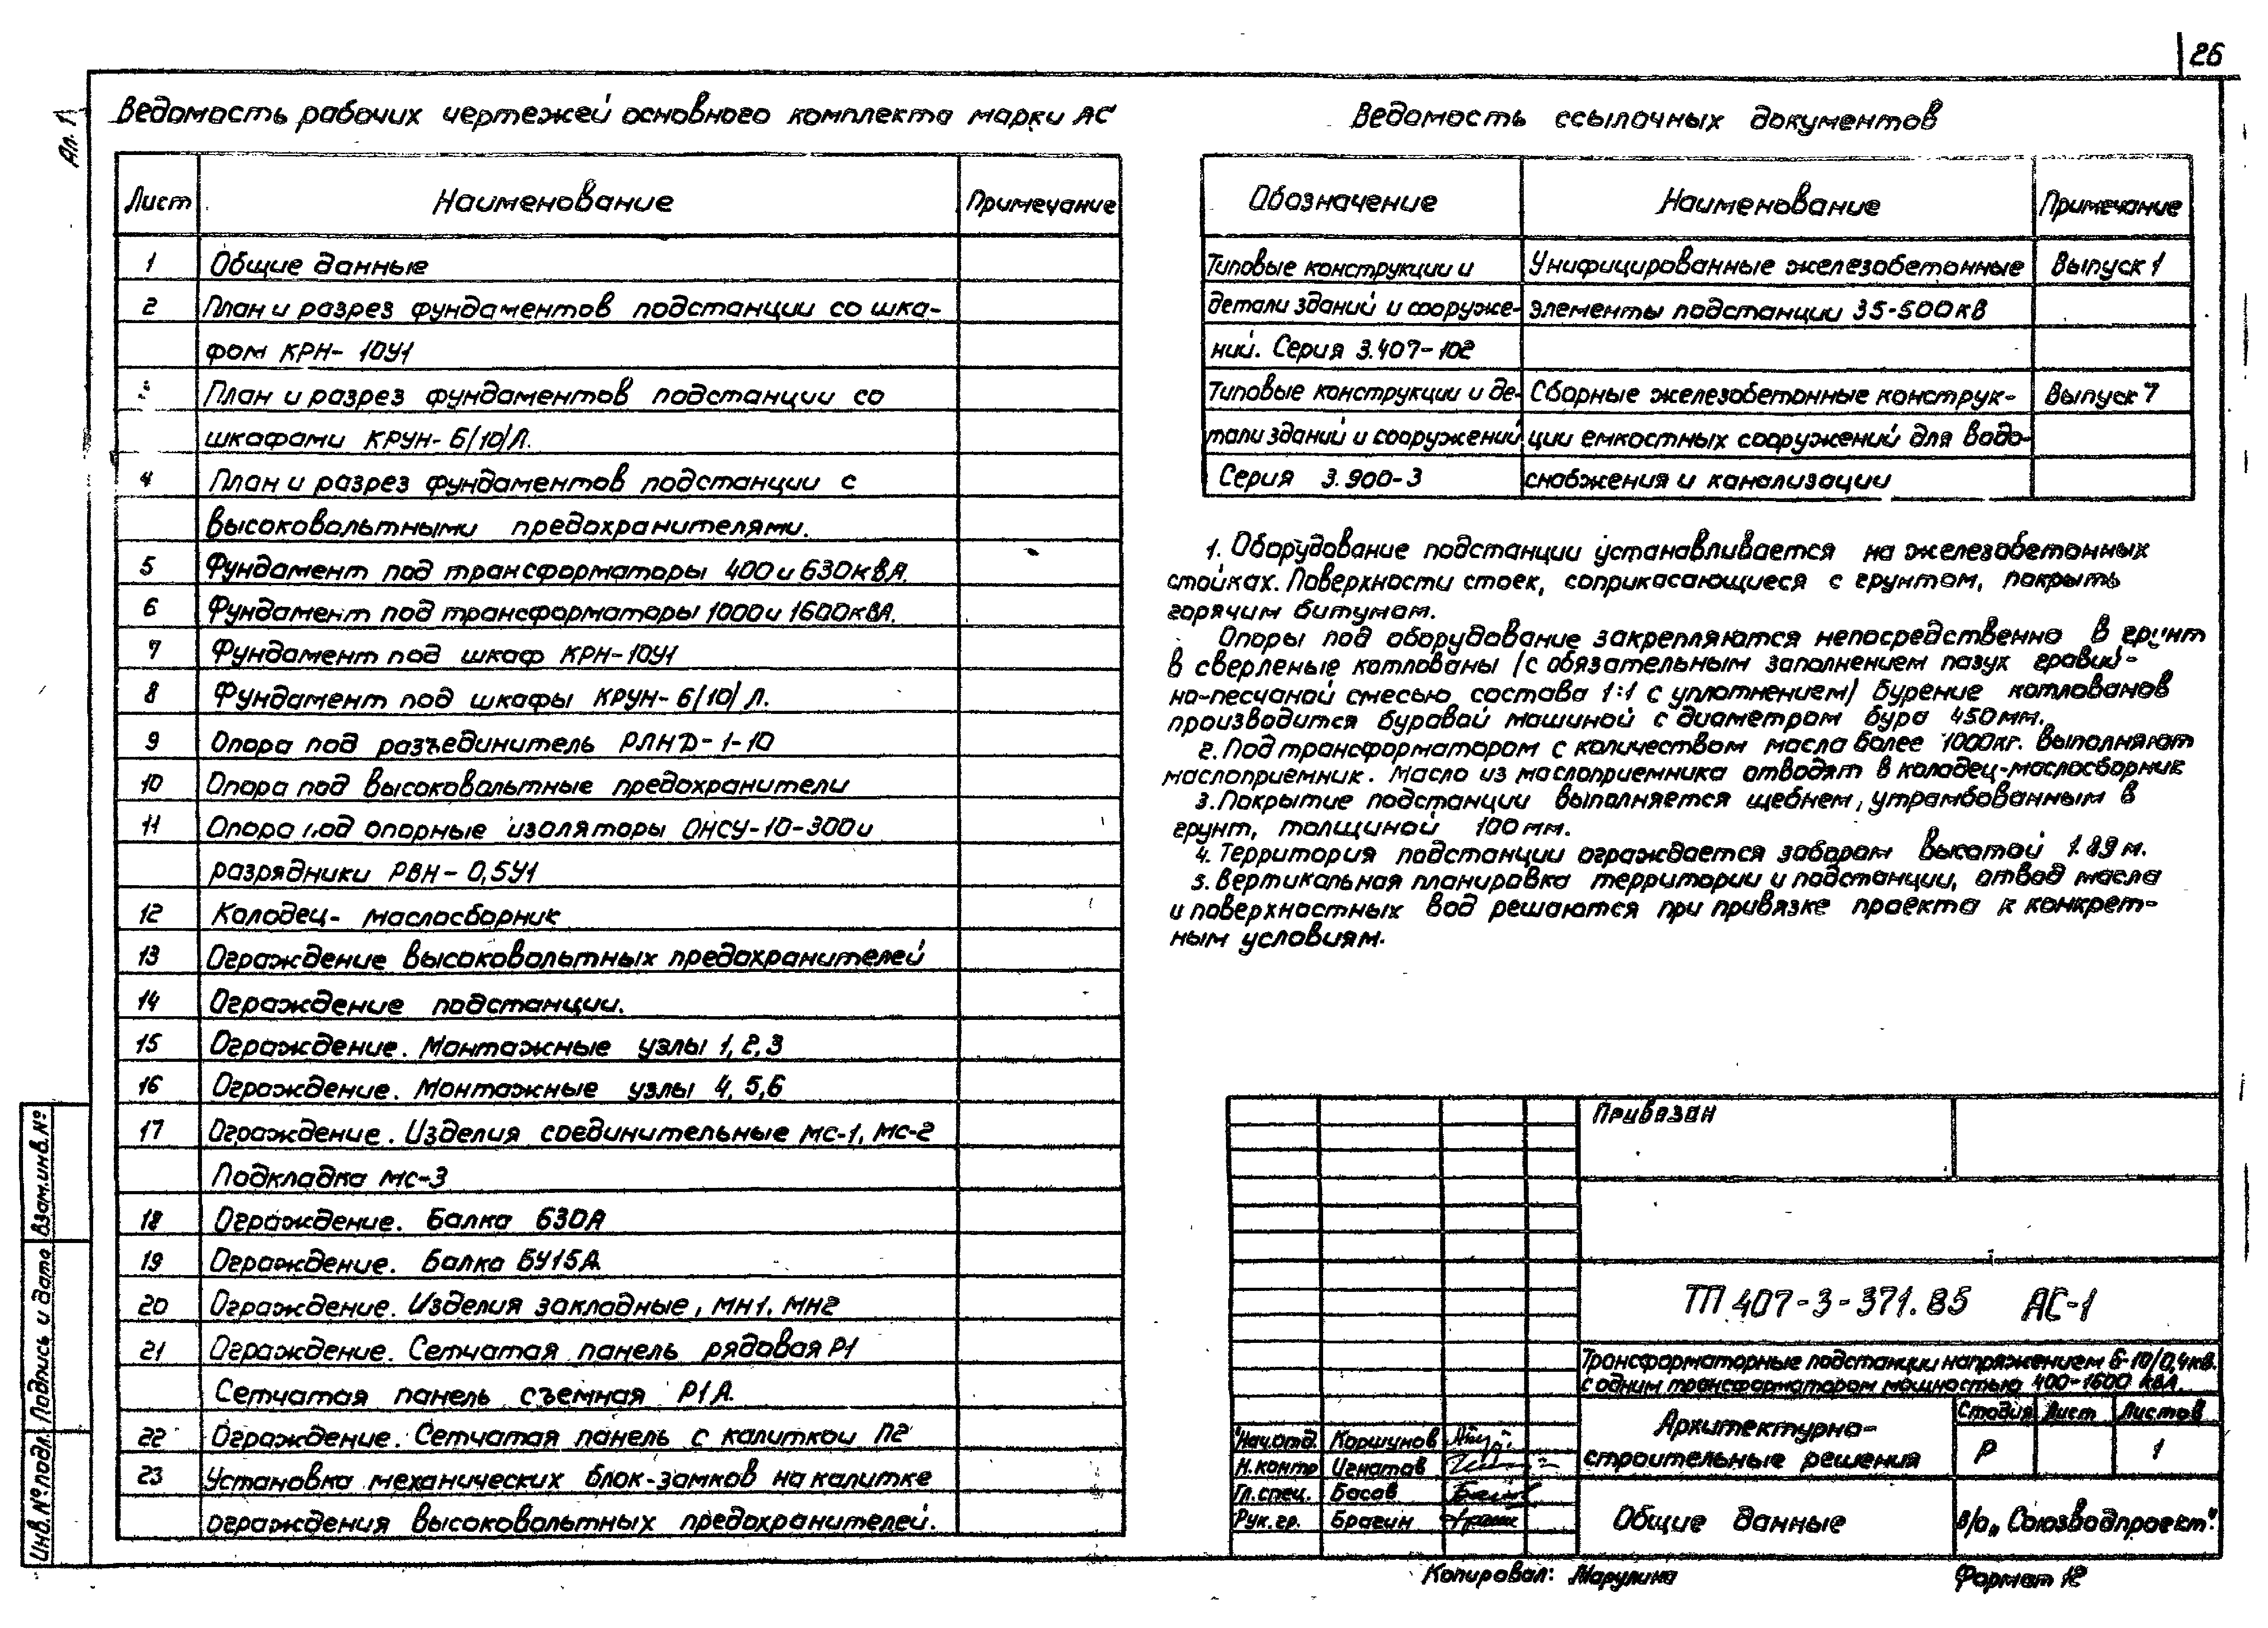 26
Ал. 1
Ведомость рабочих чертежей основного комплекта марки АС
Лист Наименование Примечание
1 Общие данные
2 План и разрез фундаментов подстанции со шка-
фом КРН- 10У1
План и разрез фундаментов подстанции со
шкафами КРУН- 6/10/Л.
4 План и разрез фундаментов подстанции с
высоковольтными предохранителями.
5 Фундамент под трансформаторы 400 и 630кВА.
6 Фундамент под трансформаторы 1000 и 1600кВА.
7 Фундамент под шкаф КРН-10У1
8 Фундамент под шкафы КРУН- 6/10/Л.
9 Опора под разъединитель РЛНД-1-10
10 Опора под высоковольтные предохранители
11 Опора под опорные изоляторы ОНСУ-10-300 и
разрядники РВН- 0,5У1
12 Колодец- маслосборник
13 Ограждение высоковольтных предохранителей
14 Ограждение подстанции.
15 Ограждение. Монтажные узлы 1, 2, 3
16 Ограждение. Монтажные узлы 4, 5, 6
17 Ограждение. Изделия соединительные МС-1, МС-2
Подкладка МС-3
18 Ограждение. Балка Б30А
19 Ограждение. Балка БУ15А
20 Ограждение. Изделия закладные, МН1, МН2
21 Ограждение. Сетчатая панель рядовая Р1
Сетчатая панель съемная Р1А.
22 Ограждение. Сетчатая панель с калиткой П2
23 Установка механических блок-замков на калитке
ограждения высоковольтных предохранителей.
Ведомость ссылочных документов
Обозначение Наименование Примечание
Типовые конструкции и Унифицированные железобетонные Выпуск 1
детали зданий и сооруже- элементы подстанции 35-500кв
ний. Серия 3.407-102
Типовые конструкции и де- Сборные железобетонные конструк- Выпуск 7
тали зданий и сооружений ции емкостных сооружений для водо-
Серия 3.900-3 снабжения и канализации
1. Оборудование подстанции устанавливается на железобетонных
стойках. Поверхности стоек, соприкасающиеся с грунтом, покрыть
горячим битумом.
Опоры под оборудование закрепляются непосредственно в грунт
в сверленые котлованы /с обязательным заполнением пазух гравий-
но-песчаной смесью состава 1:1 с уплотнением/ бурение котлованов
производится буровой машиной с диаметром бура 450мм.
2. Под трансформатором с количеством масла более 1000кг. выполняют
маслоприемник. Масло из маслоприемника отводят в колодец-маслосборник
3. Покрытие подстанции выполняется щебнем, утрамбованным в
грунт, толщиной 100мм.
4. Территория подстанции ограждается забором высотой 1.89м.
5. Вертикальная планировка территории и подстанции, отвод масла
и поверхностных вод решаются при привязке проекта к конкрет-
ным условиям.
Привязан
ТП 407-3-371.85 АС-1
Трансформаторные подстанции напряжением 6-10/0,4кв.
с одним трансформатором мощностью 400-1600 кВА.
Архитектурно-
строительные решения
Стадия Лист Листов
Р 1
Нач.отд. Коршунов
Н.контр Игнатов
Гл.спец. Басов
Рук.гр. Брагин
Общие данные
В/О „Союзводпроект".
Копировал: Марулина
Формат 12
Взам.инв.№
Подпись и дата
Инв.№подл.